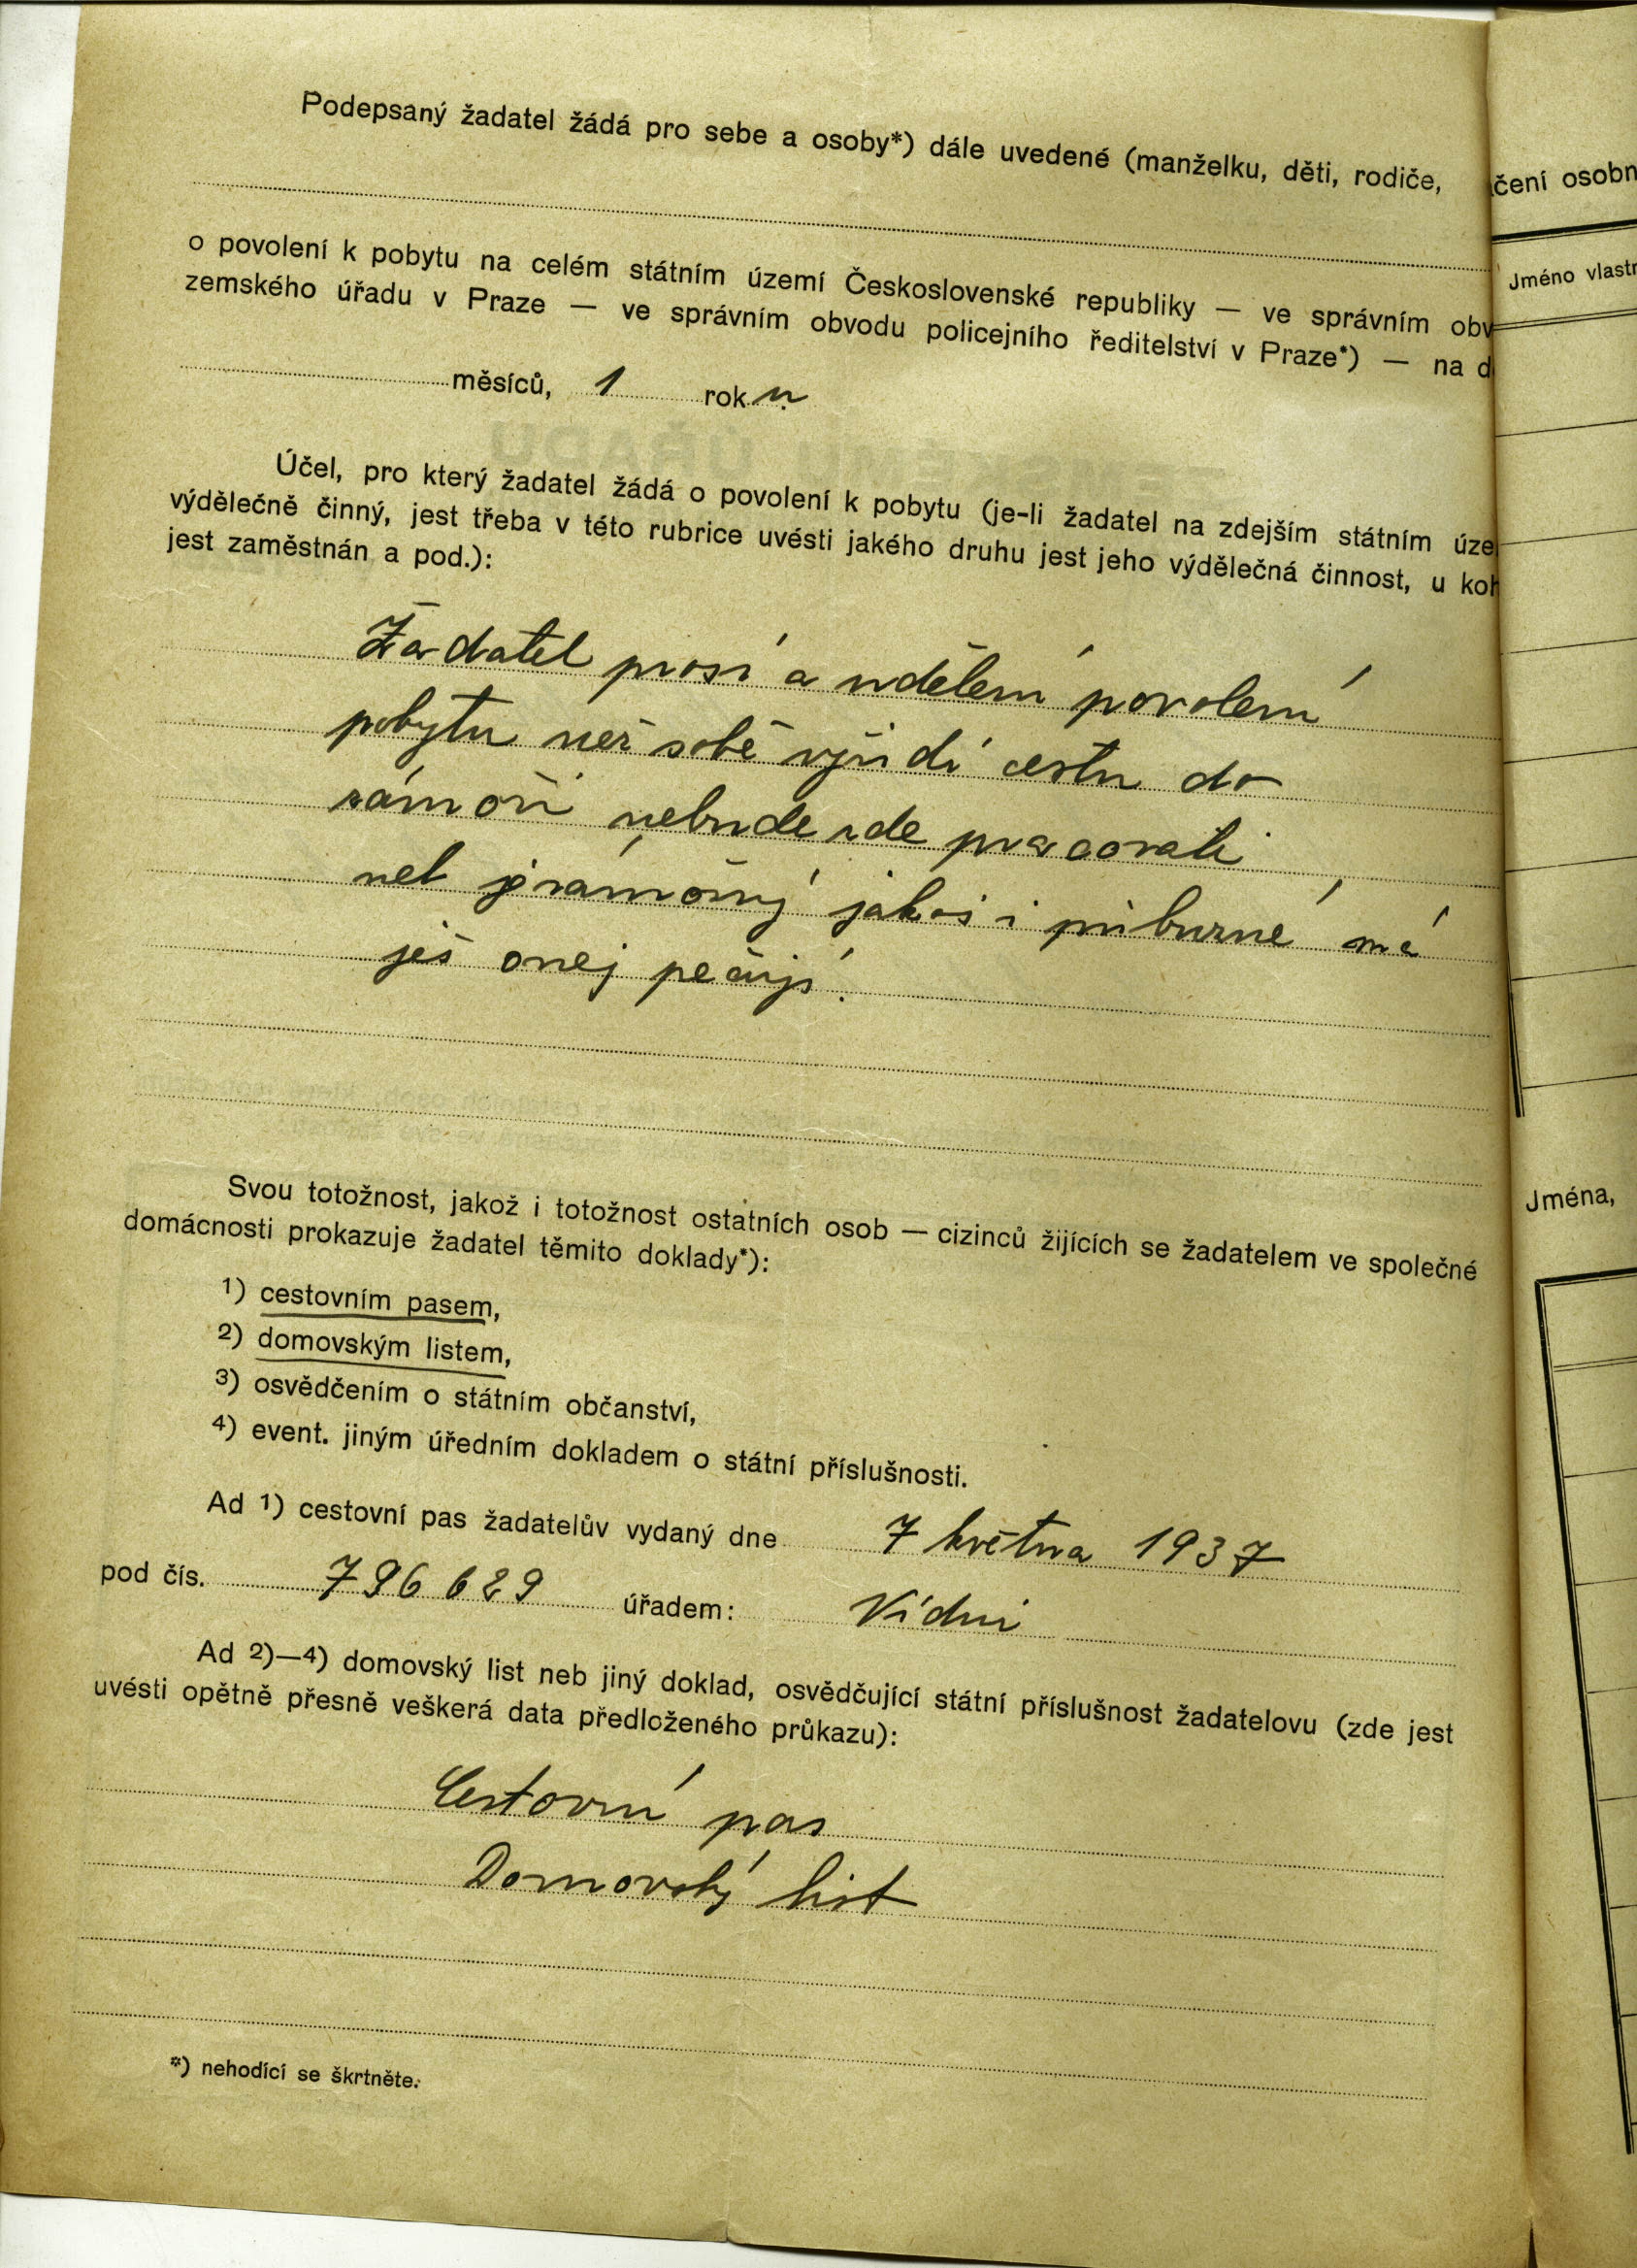 Podepsaný žadatel žádá pro sebe a osoby*) dále uvedené (manželku, děti, rodiče,
o povolení k pobytu na celém státním území Československé republiky — ve správním obv
zemského úřadu v Praze — ve správním obvodu policejního ředitelství v Praze*) — na d
měsíců, 1 roku.
Účel, pro který žadatel žádá o povolení k pobytu (je-li žadatel na zdejším státním úze
výdělečně činný, jest třeba v této rubrice uvésti jakého druhu jest jeho výdělečná činnost, u koh
jest zaměstnán a pod.):
Žadatel prosí a udělení povolení
pobytu než sobě vyřídí cestu do
zámoří nebude zde pracovati
neb jizámožný jakož i příbuzné má
jež onej pečují.
Svou totožnost, jakož i totožnost ostatních osob — cizinců žijících se žadatelem ve společné
domácnosti prokazuje žadatel těmito doklady*):
1) cestovním pasem,
2) domovským listem,
3) osvědčením o státním občanství,
4) event. jiným úředním dokladem o státní příslušnosti.
Ad 1) cestovní pas žadatelův vydaný dne 7 května 1937
pod čís. 796629 úřadem: Vídni
Ad 2)—4) domovský list neb jiný doklad, osvědčující státní příslušnost žadatelovu (zde jest
uvésti opětně přesně veškerá data předloženého průkazu):
Cestovní pas
Domovský list
*) nehodící se škrtněte.
čení osobn
Jméno vlastn
Jména,